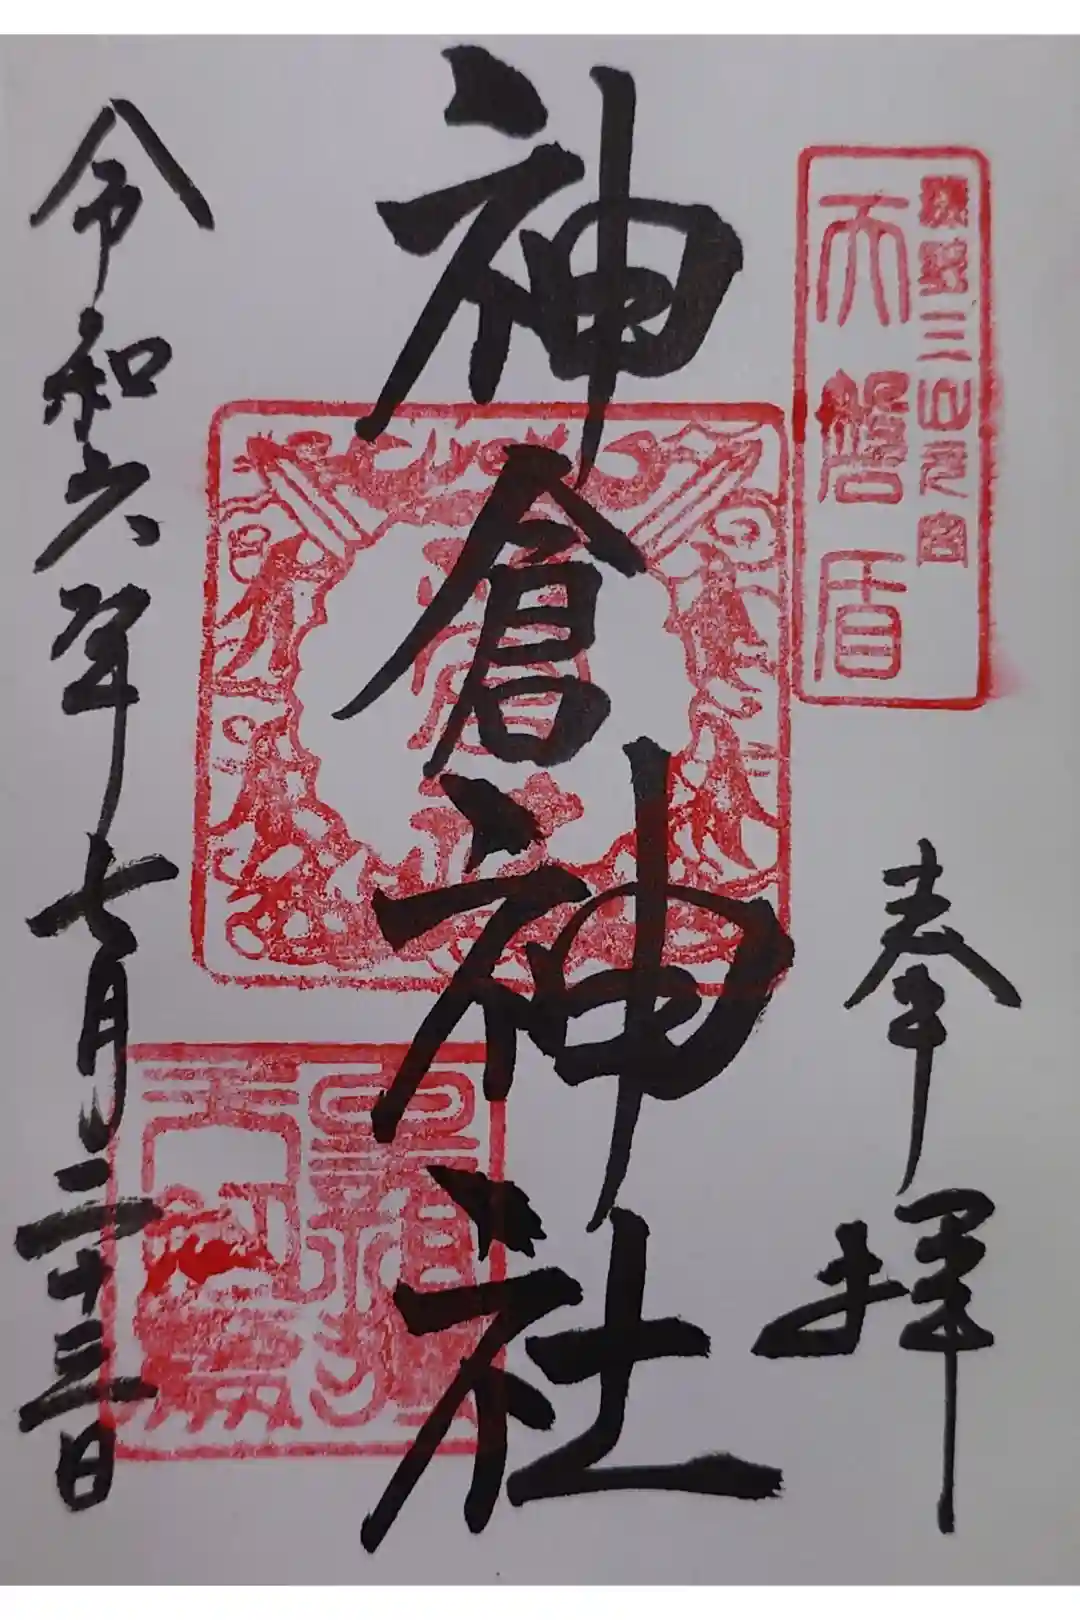 熊野三山元宮
天磐盾
奉拝
神倉神社
令和六年七月二十三日